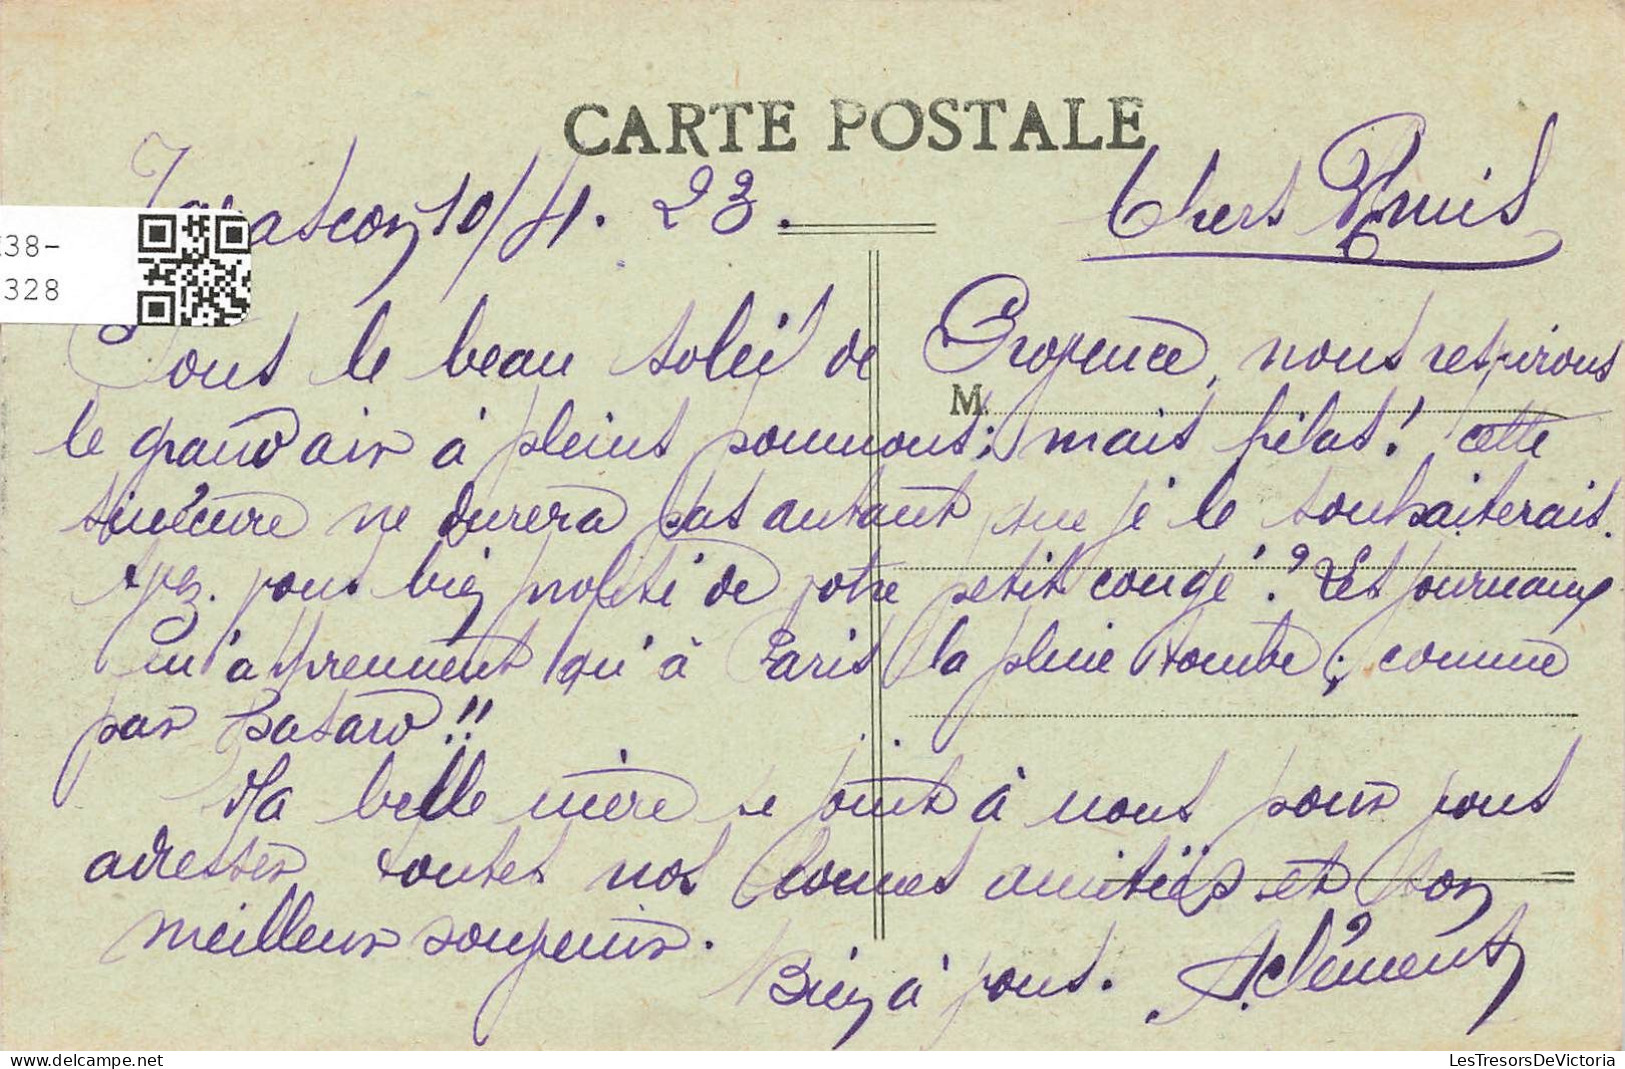 CARTE POSTALE
Tarascon 10/4. 23.
Chers Amis
Sous le beau soleil de Provence, nous respirons
M.
le grand air à pleins poumons; mais hélas! cette
sinécure ne durera pas autant que je le souhaiterais.
Avez-vous bien profité de votre petit congé? Les journaux
m'apprennent qu'à Paris la pluie tombe; comme
par hasard!!
Ma belle mère se joint à nous pour vous
adresser toutes nos bonnes amitiés et son
meilleur souvenir.
Bien à vous. A. Clément
38-
328
LesTresorsDeVictoria
delcampe.net